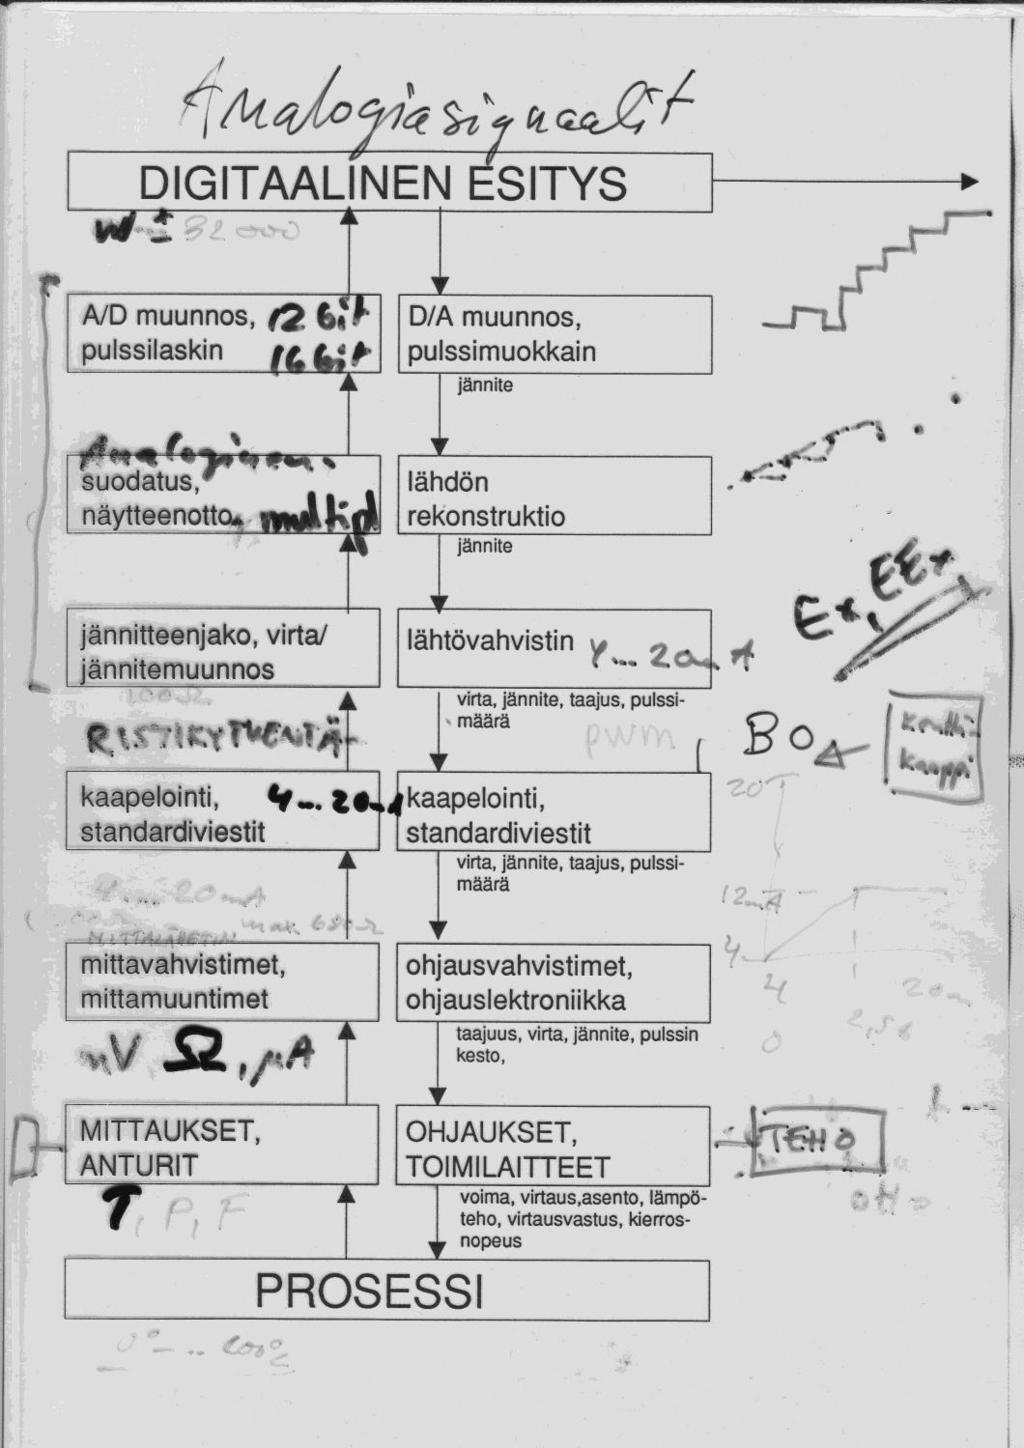 Analogiasignaalit
DIGITAALINEN ESITYS
± 32 000
A/D muunnos, 12 bit
pulssilaskin 16 bit
D/A muunnos,
pulssimuokkain
jännite
Analoginen
suodatus,
näytteenotto, multipl
lähdön
rekonstruktio
jännite
Ex, EEx
jännitteenjako, virta/
jännitemuunnos
lähtövahvistin 4...20mA
100Ω
virta, jännite, taajus, pulssi-
määrä
pwm
RISTIKYTKENTÄ
BO
kaappi
kaapelointi, 4...20mA
standardiviestit
kaapelointi,
standardiviestit
20
virta, jännite, taajus, pulssi-
määrä
4...20mA
max. 680Ω
MITTALÄHETIN
12mA
4
mittavahvistimet,
mittamuuntimet
ohjausvahvistimet,
ohjauslektroniikka
4
0
taajuus, virta, jännite, pulssin
kesto,
mV, Ω, µA
MITTAUKSET,
ANTURIT
OHJAUKSET,
TOIMILAITTEET
TEHO
T, P, F
voima, virtaus,asento, lämpö-
teho, virtausvastus, kierros-
nopeus
PROSESSI